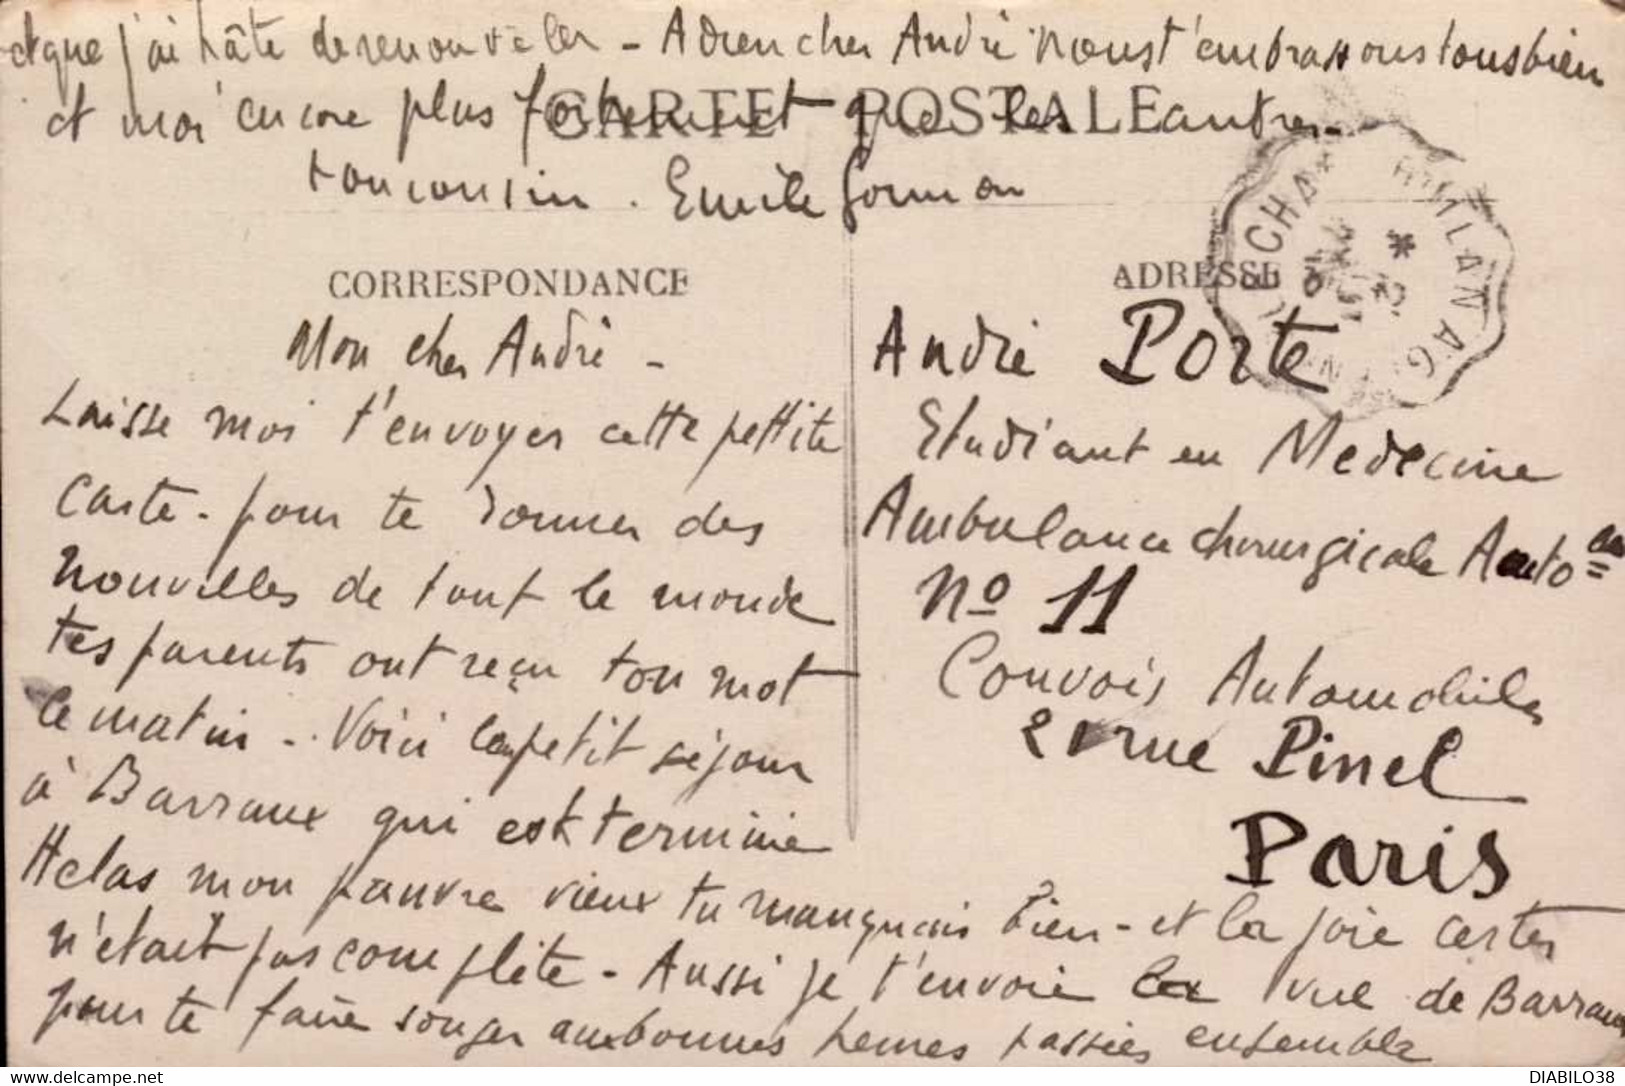 et que j'ai hâte de renouveler - Adieu cher André nous t'embrassons tous bien
et moi encore plus fortement que les autres -
CARTE POSTALE
ton cousin. Emile
CORRESPONDANCE
ADRESSE
Mon cher André -
Laisse moi t'envoyer cette pettite
carte - pour te donner des
nouvelles de tout le monde
tes parents ont reçu ton mot
le matin - Voici le petit séjour
à Barraux qui est terminé
Helas mon pauvre vieux tu manquais bien - et la joie certes
n'était pas complète - Aussi je t'envoie la vue de Barraux
pour te faire songer aux bonnes heures passées ensemble
André Porte
Etudiant en Medecine
Ambulance chirurgicale Auto
No 11
Convois Automobiles
21 rue Pinel
Paris
DIABILO38
www.delcampe.net